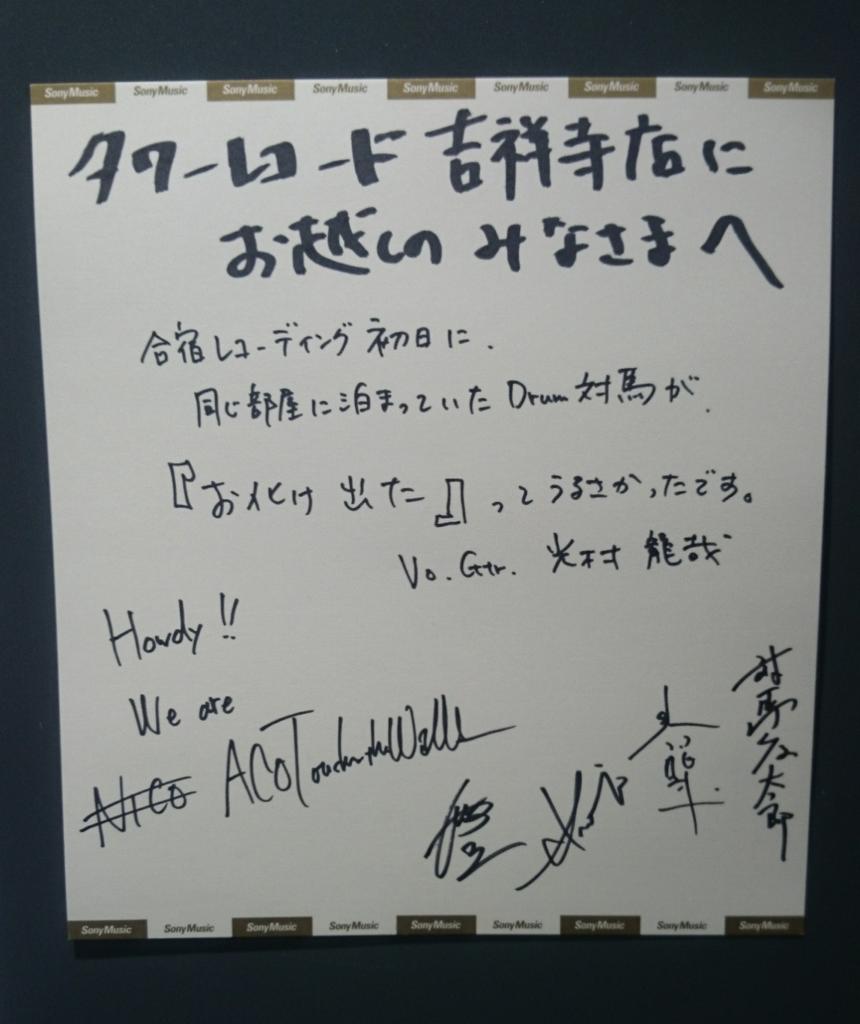 SonyMusic SonyMusic SonyMusic SonyMusic SonyMusic SonyMusic SonyMusic SonyMusic SonyMusic
タワーレコード 吉祥寺店に
お越しの みなさまへ
合宿レコーディング 初日に、
同じ部屋に泊まっていた Drum 対馬が、
『お化け 出た』ってうるさかったです。
Vo. Gtr. 光村 龍哉
Howdy!!
We are
NICO ACO Touches the Walls
対馬祥太郎
SonyMusic SonyMusic SonyMusic SonyMusic SonyMusic SonyMusic SonyMusic SonyMusic SonyMusic